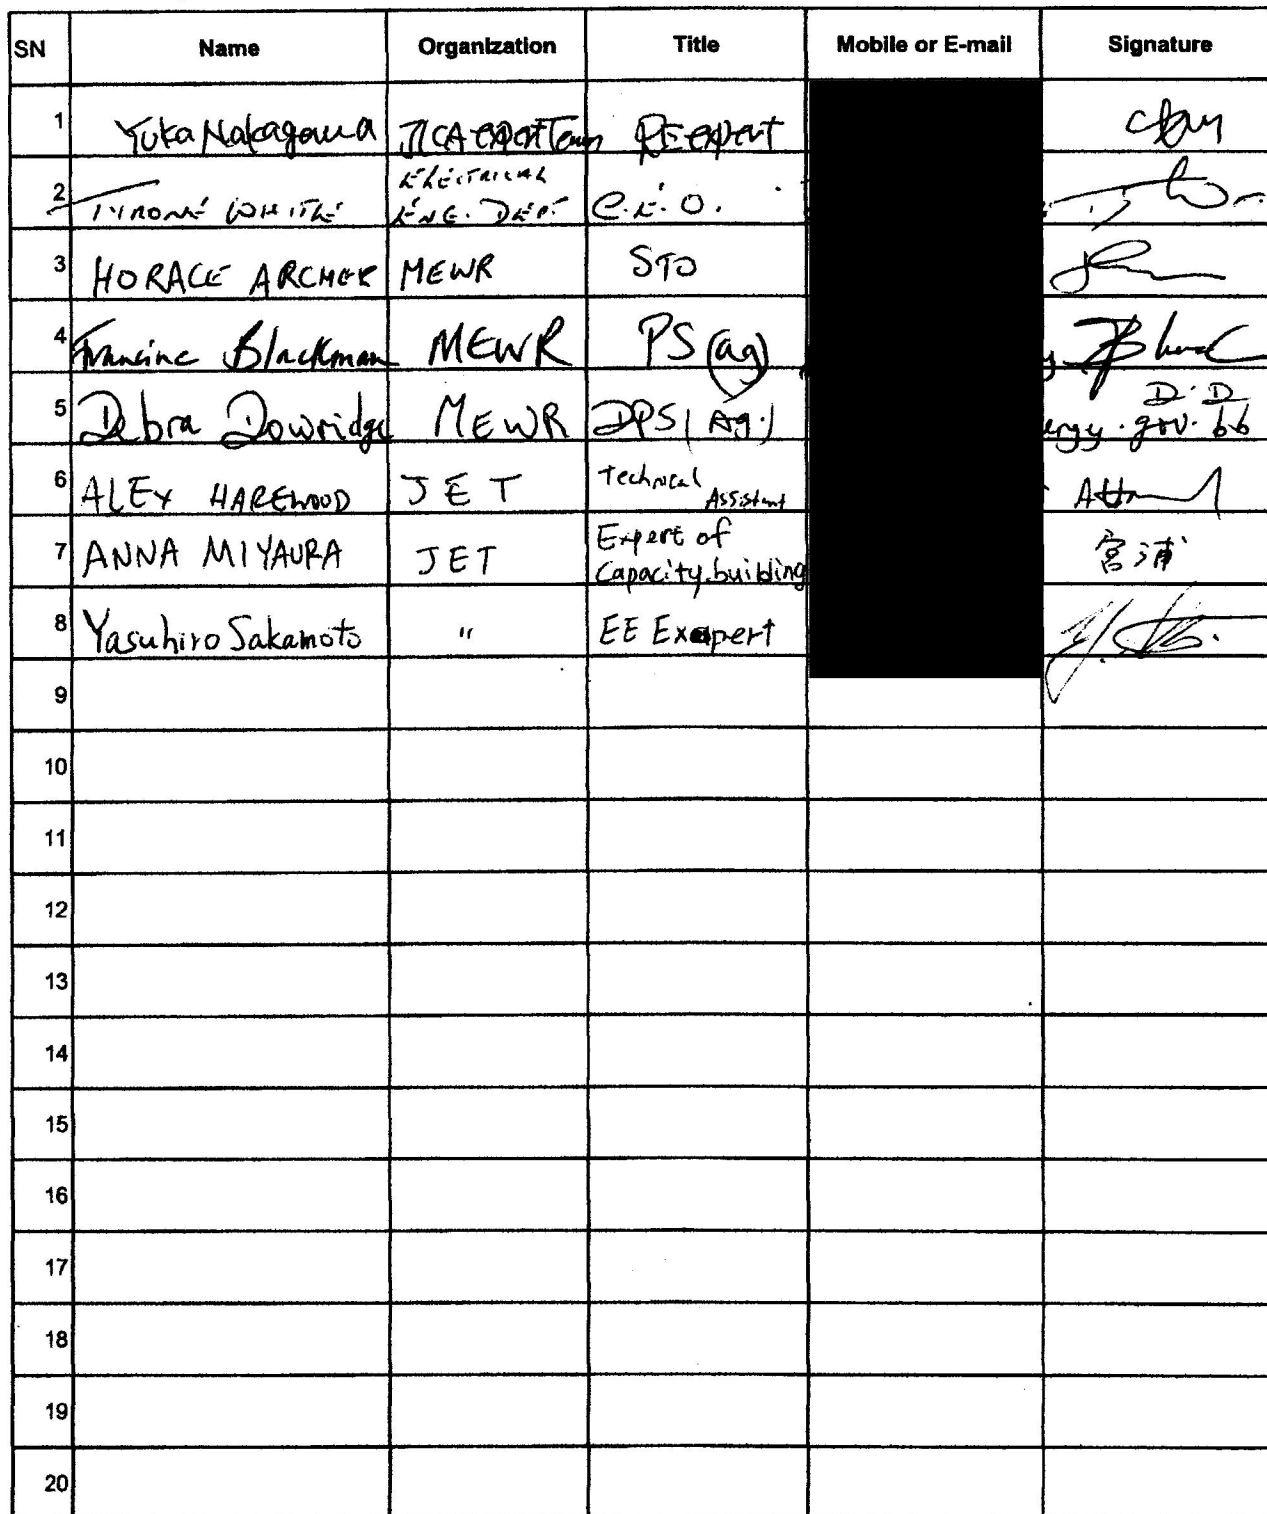 SN Name Organization Title Mobile or E-mail Signature
1 Yuka Nakagawa JICA expert Team RE expert
2 TYRONE WHITE ELECTRICAL ENG. DEPT C.E.O.
3 HORACE ARCHER MEWR STO
4 Francine Blackman MEWR PS (ag)
5 Debra Dowridge MEWR DPS (Ag.) ergy.gov.bb D.D
6 ALEX HAREWOOD JET Technical Assistant
7 ANNA MIYAURA JET Expert of Capacity building 宮浦
8 Yasuhiro Sakamoto " EE Expert
9
10
11
12
13
14
15
16
17
18
19
20